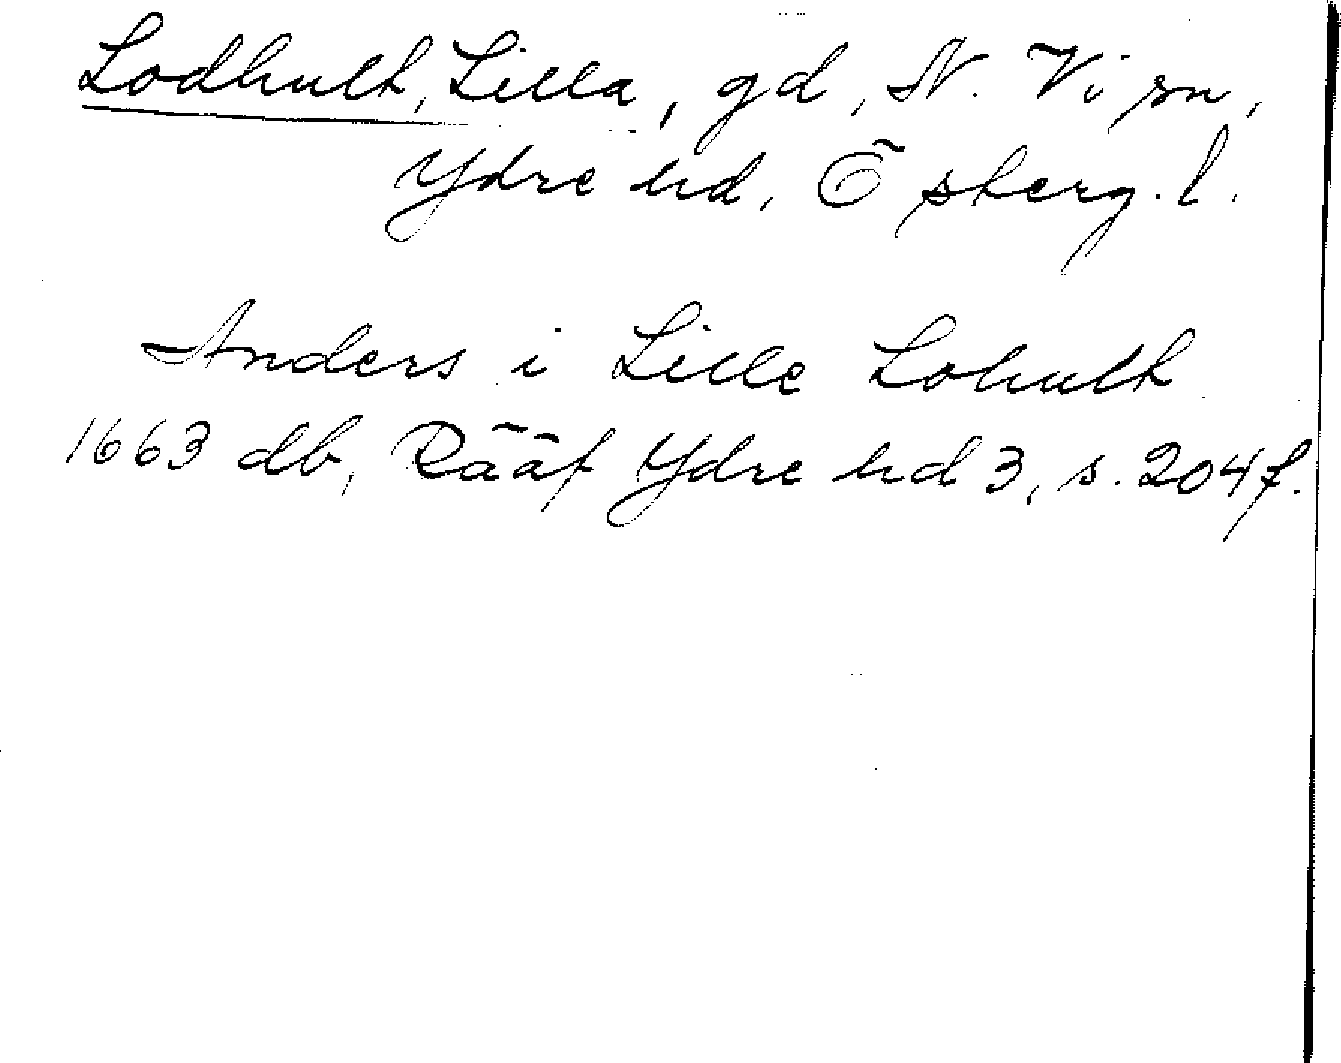 Lodhult, Lilla, gd, N. Vi sn,
Ydre hd, Ö sterg. l.
Anders i Lille Lohult
1663 db, Rääf Ydre hd 3, s. 204 f.